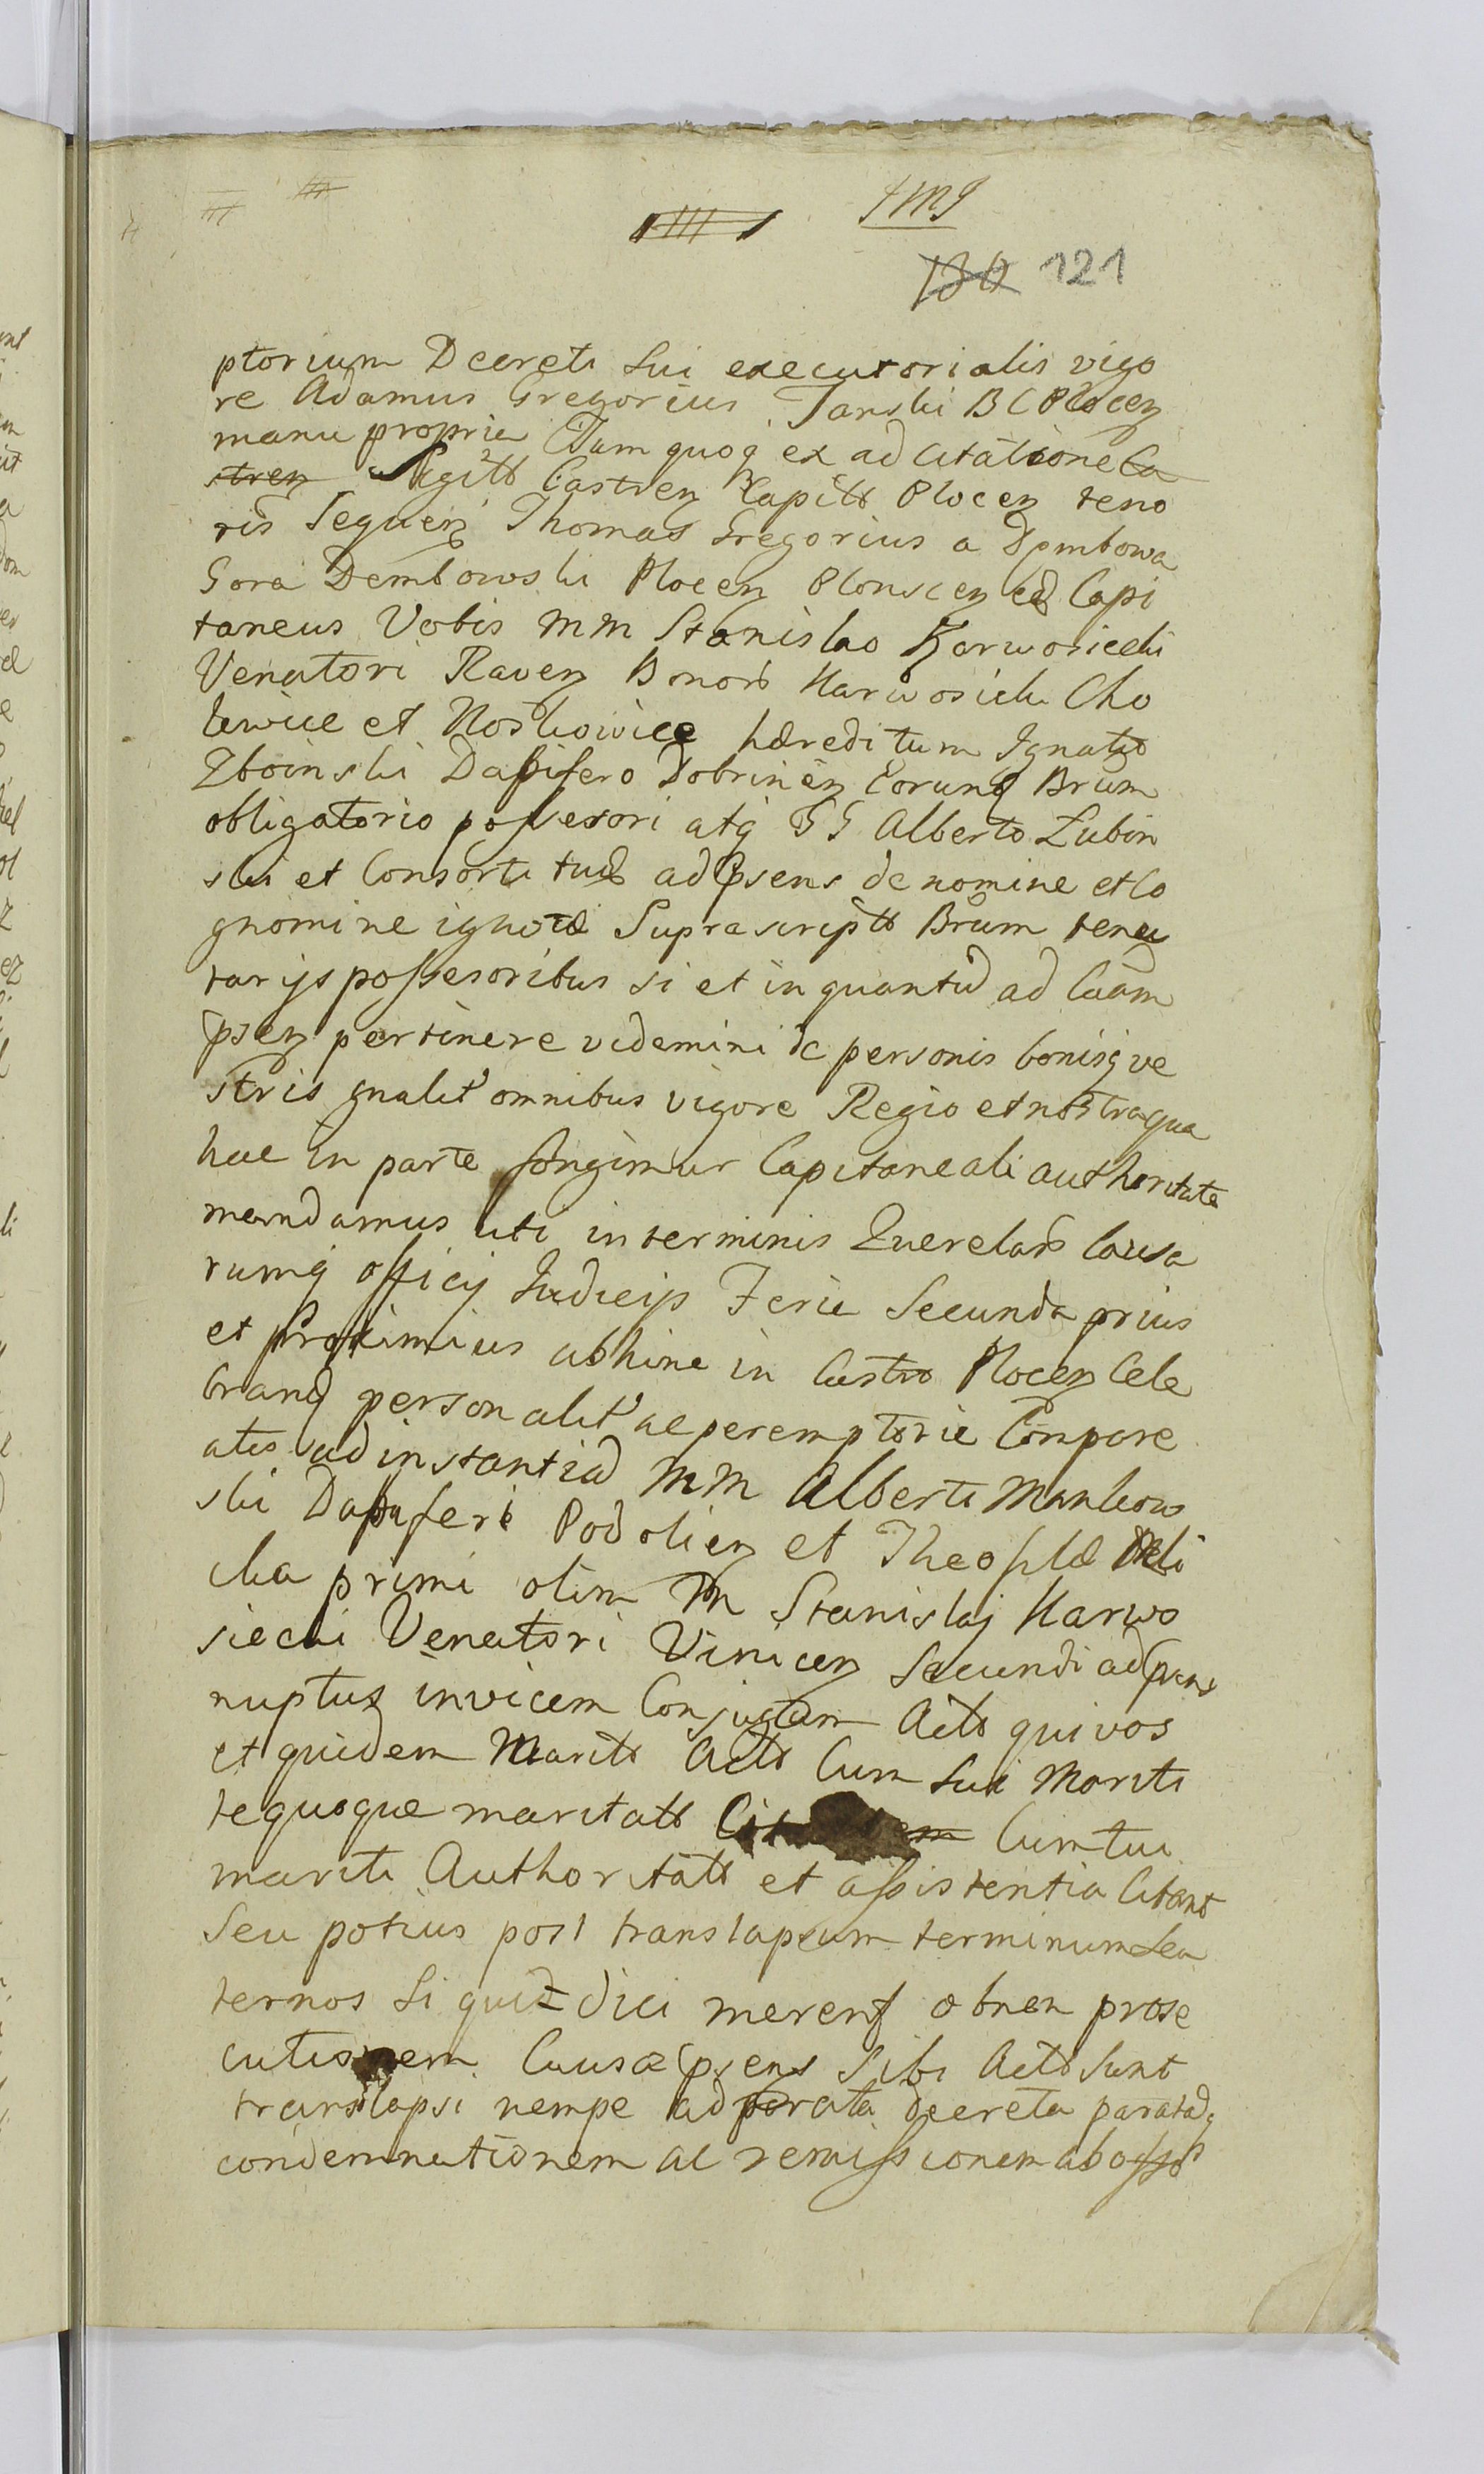 121
ptorium Decreti Sui executorialis vigo
re Adamus Gregorius Janski BC Plocen
manu propria Tum quoq ex ad Citatione Ca
stren Sigitt Castren Capitt Plocen teno
ris Sequen Thomas Gregorius a Dembowa
Gora Dembowski Plocen Plonscen et Capi
taneus Vobis MM Stanislao Karwosiecki
Venatori Raven Bonor Karwosieki Cho
lewice et Noskowice hæreditum Ignatio
Zboinski Dapifero Dobrinen Eorund Brum
obligatorio possesori atq GG Alberto Lubin
ski et Consorti tuæ ad psens de nomine et Co
gnomine ignotæ Suprascriptt Brum tenu
tarijs possesoribus si et in quantu ad Caam
psen pertinere videmini de personis bonisq ve
stris gnalit omnibus vigore Regio et nostra qua
hac in parte fungimur Capitaneali authoritate
mandamus uti in terminis Querelar Causa
rumq officij Judicijs Feria Secunda prius
et Proximius abhinc in Castro Plocen Cele
brand personalit ac peremptorie Compare
atis ad instantia MM Alberti Mankow
ski Dapiferi Podolien et Theophilæ
cka primi olim M Stanislaj Karwo
siecki Venatori Vinicen Secundi ad psens
nuptus invicem Conjugum Actt qui vos
et quidem Maritt Actt Cum Sui Mariti
tequoque maritatt Cum tui
mariti Authoritatt et assistentia Citant
Seu potius post translapsum terminum Seu
ternos Si quid dici merent obnen prose
cutionem Causæ psens Sibi Actt Sunt
translapsi nempe ad parata decreta paratadq
condemnationem ac remissionem ab offo